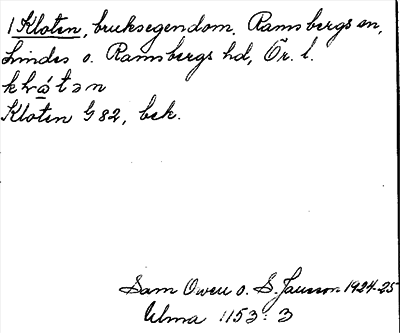 1 Kloten, bruksegendom, Ramsbergs sn,
Lindes o. Ramsbergs hd, Ör. l.
Kloten G 82, bek.
Sam Owen o. S. Jansson 1924-25
Ulma 1153:3